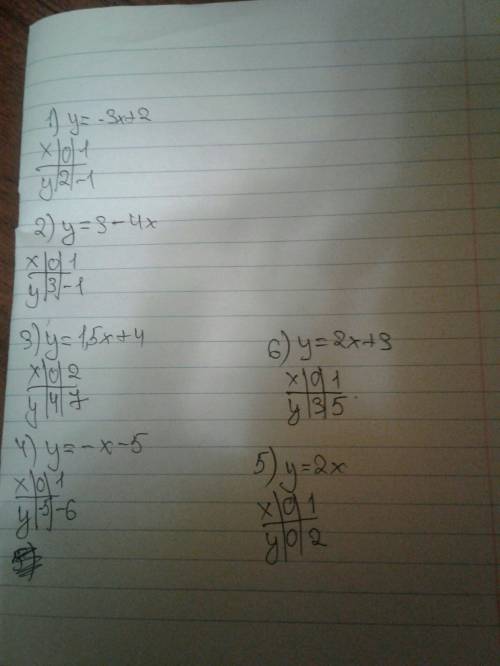 1) y = -3x+2
x | 0 | 1
y | 2 | -1
2) y = 3 - 4x
x | 0 | 1
y | 3 | -1
3) y = 1,5x + 4
x | 0 | 2
y | 4 | 7
4) y = -x - 5
x | 0 | 1
y | -5 | -6
6) y = 2x + 3
x | 0 | 1
y | 3 | 5
5) y = 2x
x | 0 | 1
y | 0 | 2